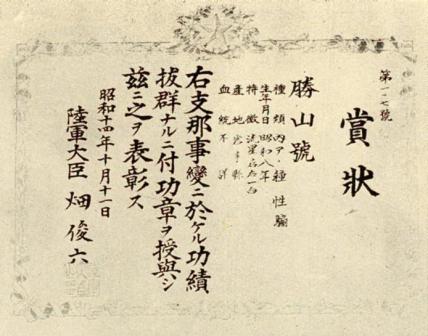 第一二七號
賞狀
勝山號
種類 內ア、種 性 騸
生年月日 昭和八年
特徵 流星
產地 岩手縣
血統 不詳
右支那事變ニ於ケル功績
拔群ナルニ付功章ヲ授與シ
茲ニ之ヲ表彰ス
昭和十四年十月十一日
陸軍大臣 畑俊六